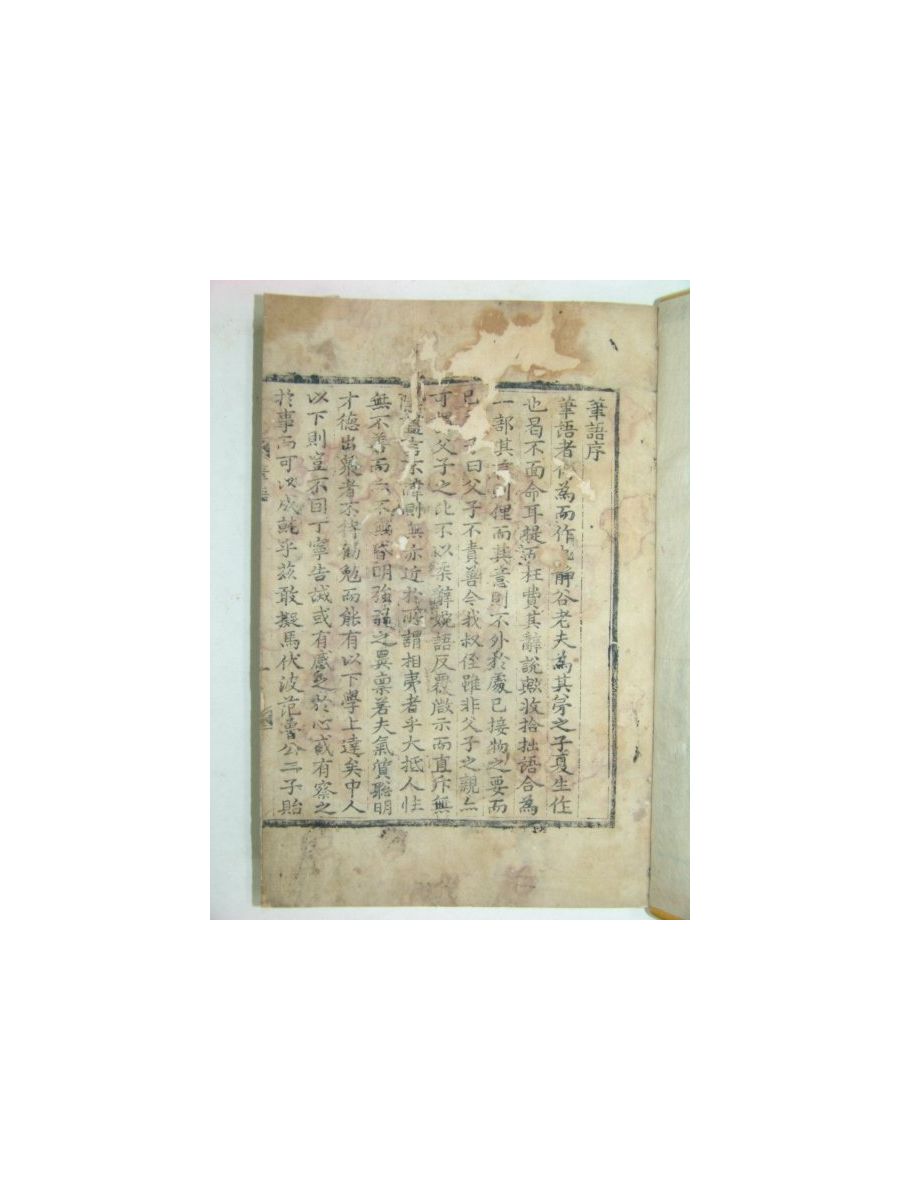 筆語序
筆語者何為而作也靜谷老夫為其弟之子夏生作
也曷不面命耳提而枉費其辭說歟收拾拙語合為
一部其則俚而其意則不外於處已接物之要而
已曰父子不責善今我叔侄雖非父子之親亦
可父子之比不以柔辭婉語反覆微示而直斥無
盡言不諱則無亦近於所謂相夷者乎大抵人性
無不善而不昏明強弱之異稟若夫氣質聰明
才德出衆者不待勸勉而能有以下學上達矣中人
以下則豈不因丁寧告誡或有感之於心或有察之
於事而可以成就乎茲敢擬馬伏波范魯公二子貽